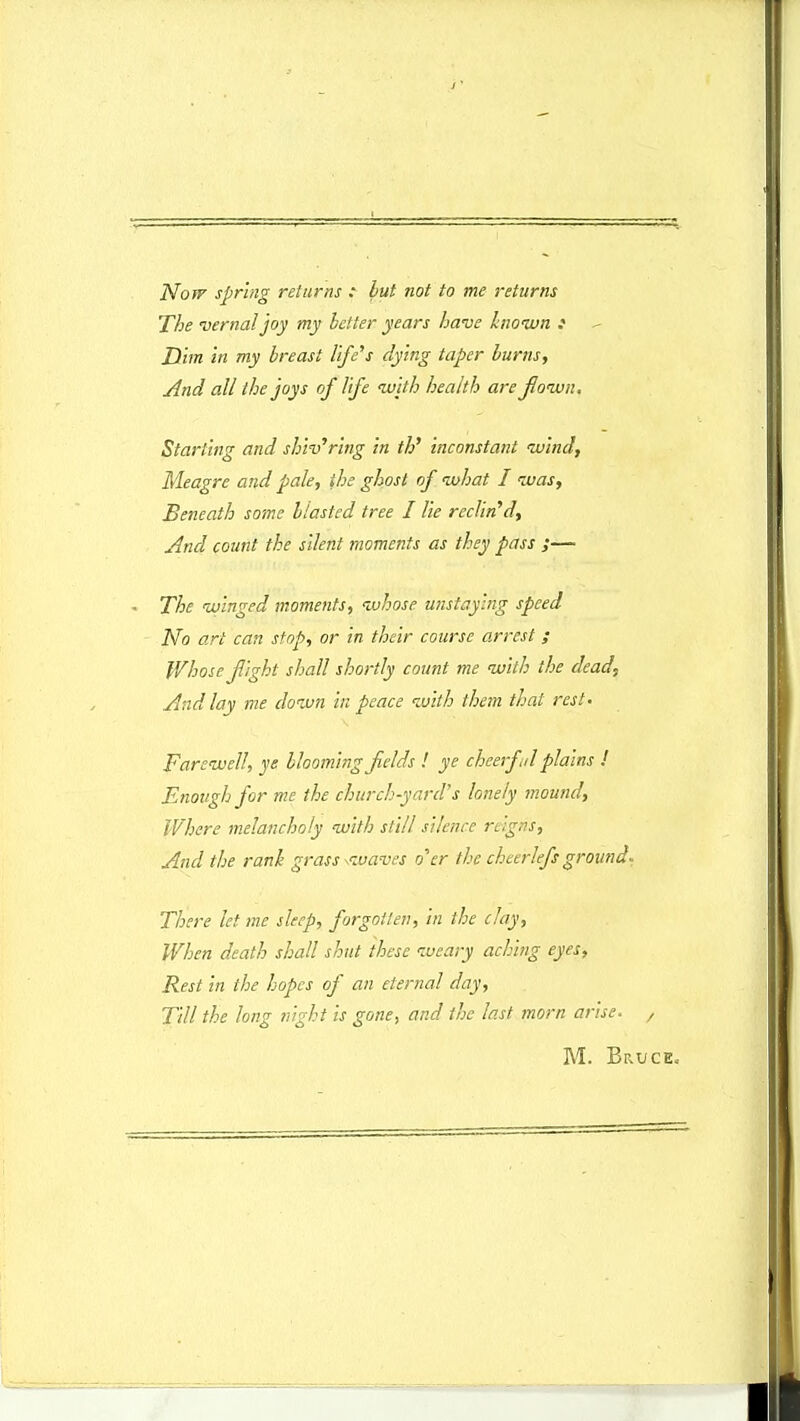 Now spring returns : but not to me returns
The vernal joy my better years have known :
Dim in my breast life's dying taper burns,
And all the joys of life with health are flown.
Starting and shiv'ring in th' inconstant wind,
Meagre and pale, the ghost of what I was,
Beneath some blasted tree I lie reclin'd,
And count the silent moments as they pass ;—
The winged moments, whose unstaying speed
No art can stop, or in their course arrest ;
Whose flight shall shortly count me with the dead,
And lay me down in peace with them that rest.
Farewell, ye blooming fields ! ye cheerful plains !
Enough for me the church-yard's lonely mound,
Where melancholy with still silence reigns,
And the rank grass waves o'er the cheerless ground.
There let me sleep, forgotten, in the clay,
When death shall shut these weary aching eyes,
Rest in the hopes of an eternal day,
Till the long night is gone, and the last morn arise.
M. BRUCE.